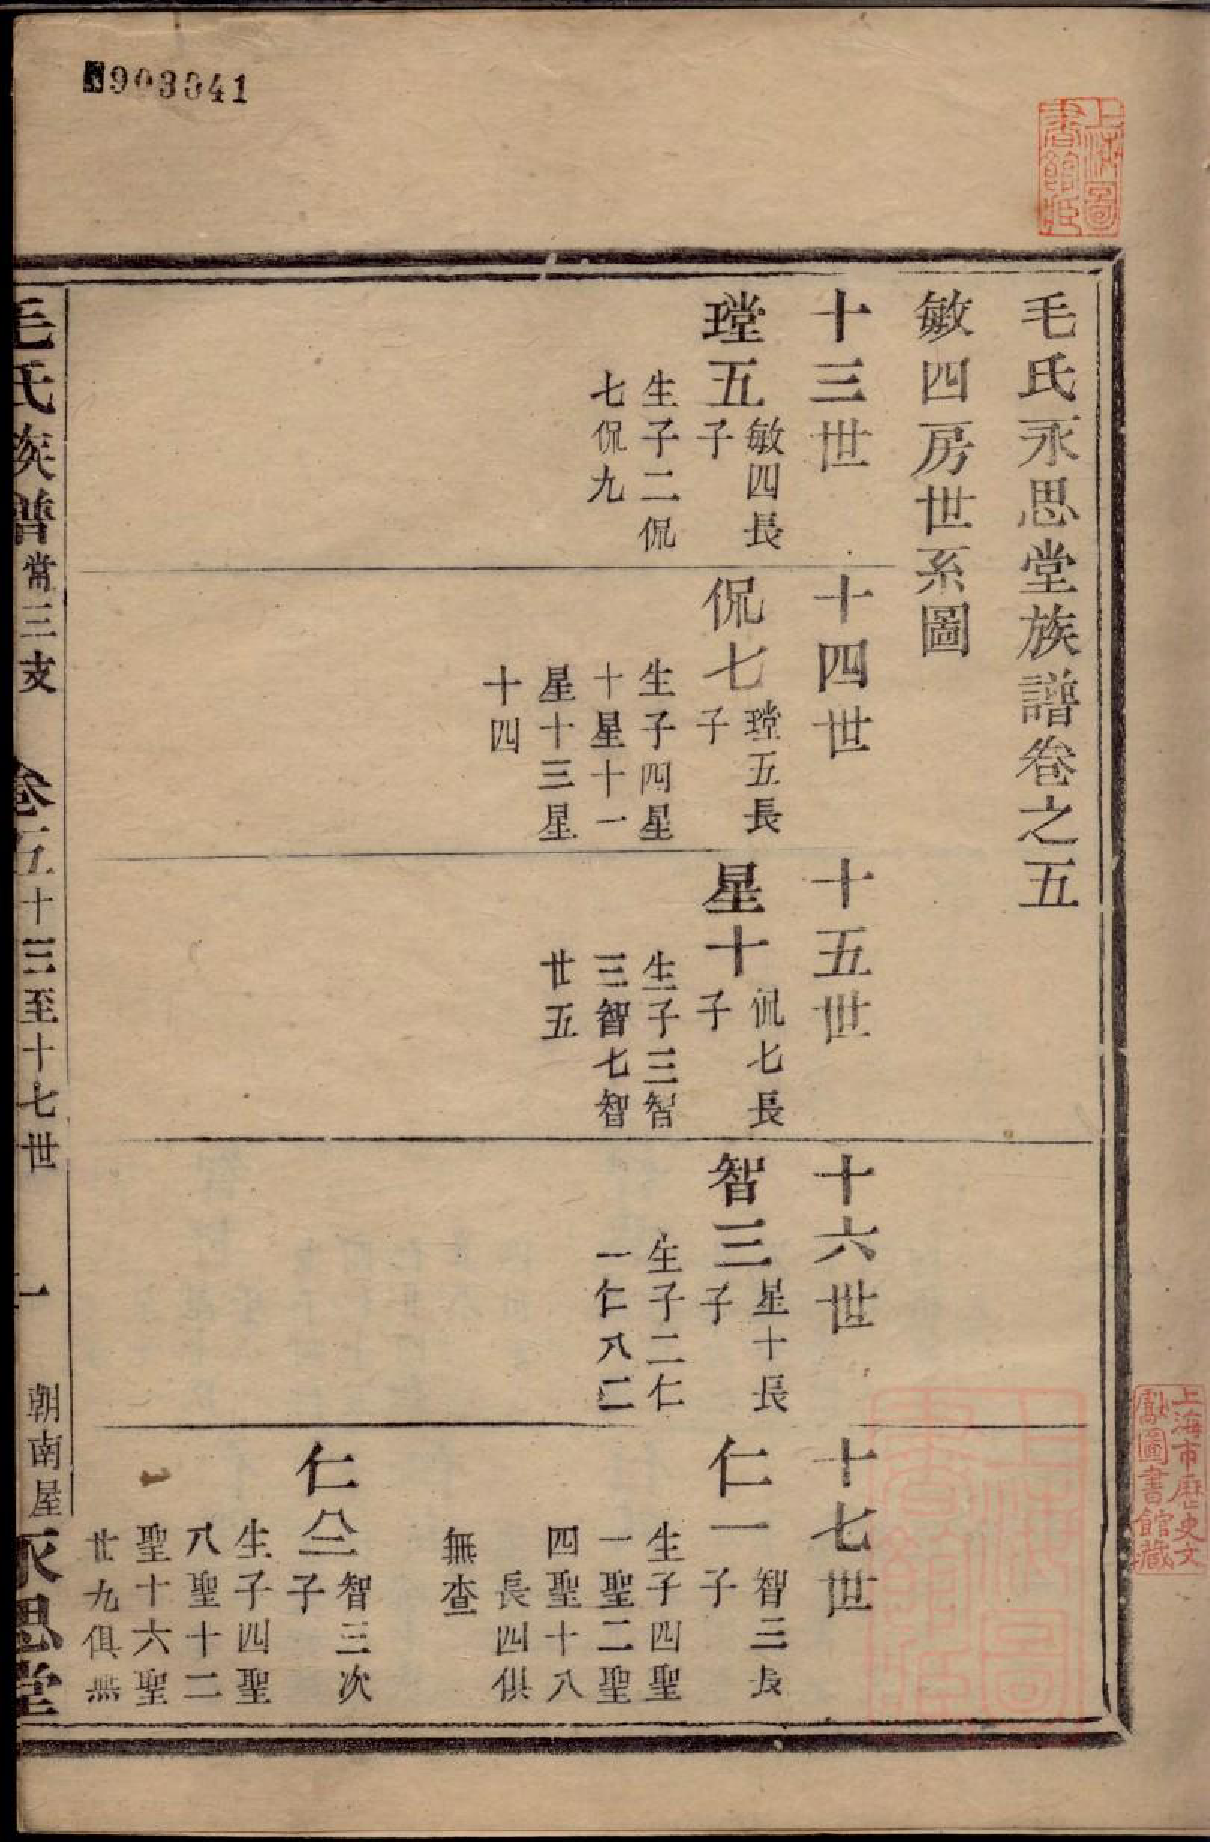 903041
上海圖
書館藏
毛氏永思堂族譜卷之五
敏四房世系圖
十三世
瑝五
敏四長
子
生子二侃
七侃九
十四世
侃七
瑝五長
子
生子四星
十星十一
星十三星
十四
十五世
星十
侃七長
子
生子三智
三智七智
廿五
十六世
智三
星十長
子
生子二仁
一仁八二
十七世
仁一
智三長
子
生子四聖
一聖二聖
四聖十八
長四俱
無查
仁
智三次
子
生子四聖
八聖十二
聖十六聖
廿九俱無
毛氏族譜
常三支
卷五
十三至十七世
一
朝南屋
永思堂
上海市歷史文
獻圖書館藏
上海圖
書館藏